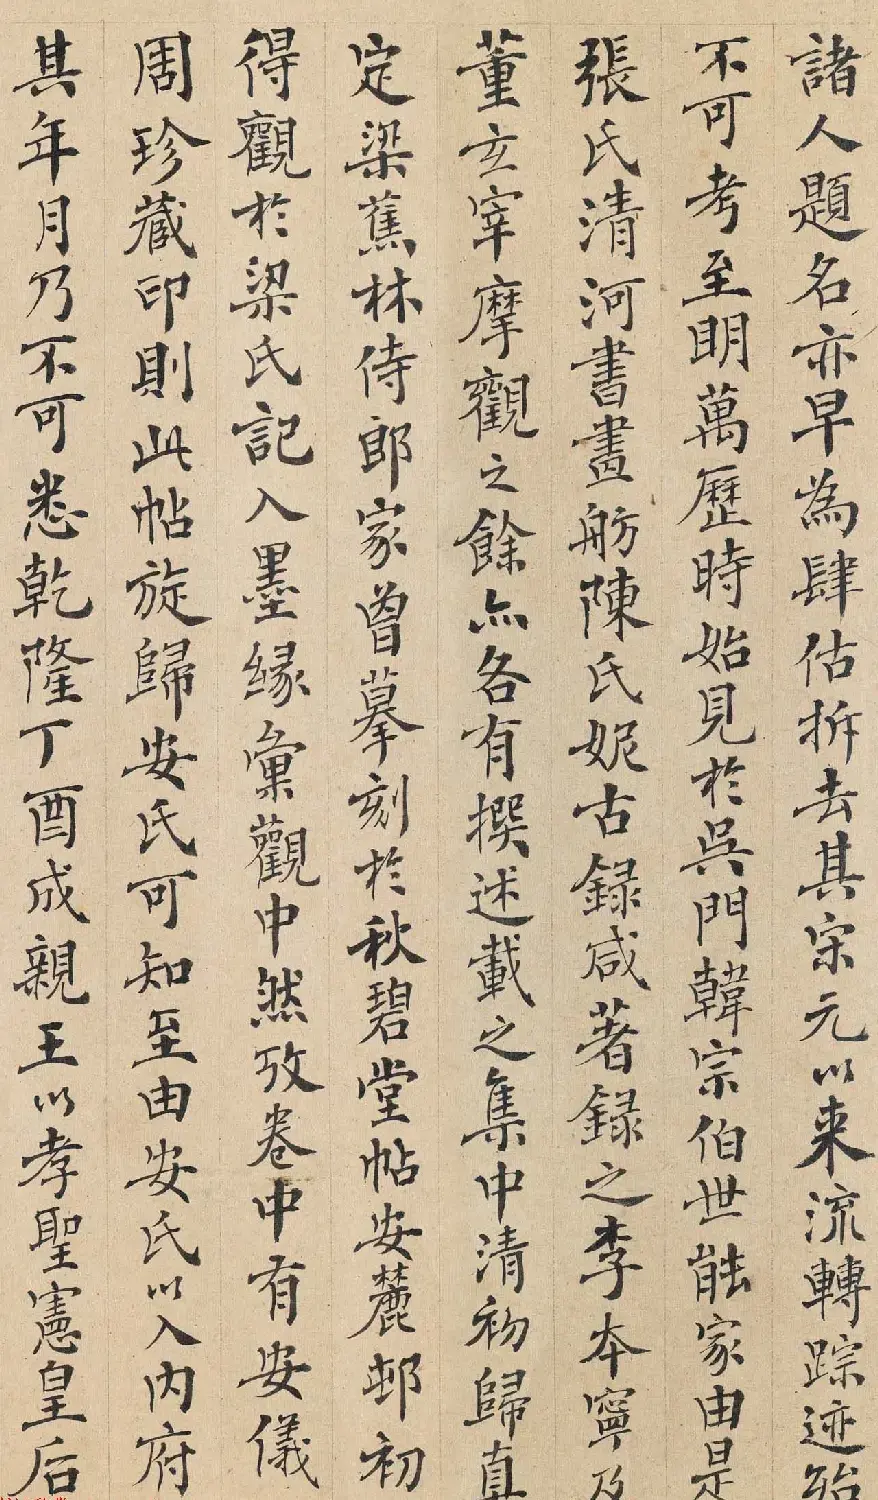 諸人題名亦早為肆估拆去其宋元以来流轉踪迹殆
不可考至明萬歷時始見於吳門韓宗伯世能家由是
張氏清河書畫舫陳氏妮古録咸著録之李本寧及
董玄宰摩觀之餘亦各有撰述載之集中清初歸真
定梁蕉林侍郎家曾摹刻於秋碧堂帖安麓邨初
得觀於梁氏記入墨緣彙觀中然攷卷中有安儀
周珍藏印則此帖旋歸安氏可知至由安氏以入内府
其年月乃不可悉乾隆丁酉成親王以孝聖憲皇后